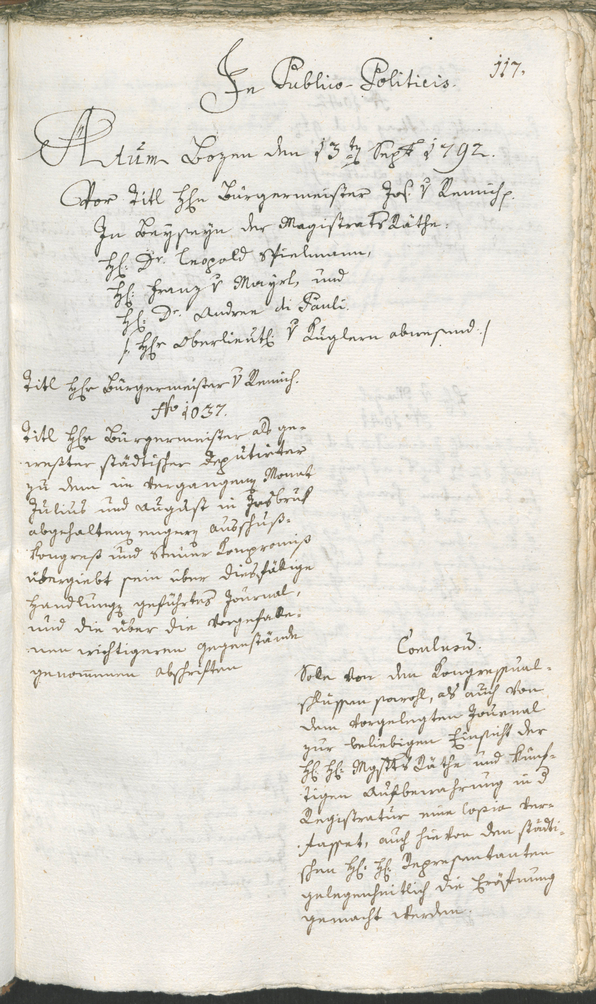 117.
In Publico-Politicis.
Actum Bozen den 13ten Sept. 1792.
Vor Titl Hhn Bürgermeister Jos. v Remich p.
In Beyseyn der Magistrats Räthe.
HH. Dr. Leopold Spielmann,
HH. Franz v Mayrl, und
HH. Dr. Andree di Pauli.
/: Hhr Oberlieut. v Kuglern abwesend :/
Titl Hhr Bürgermeister v Remich.
No 1037.
Titl Hhr Bürgermeister als ge-
weßter städtischer Deputirter
zu dem im vergangenen Monat
Julius und August in Insbruk
abgehaltenen engern Ausschuß-
Kongreß und Steuer Kompromiß
übergiebt sein über diesfälige
Handlungen geführtes Journal,
und die über die vorgefalle-
nen wichtigeren Gegenstände
genommenen Abschriften
Conclusum.
Solle von den Kongressual-
schlüssen sowohl, als auch von
dem vorgelegten Journal
zur beliebigen Einsicht der
HH. HH. Mgstts Räthe und künf-
tigen Aufbewahrung in d
Registratur eine Copia ver-
fasset, auch hievon den städti-
schen HH. HH. Representanten
gelegenheitlich die Eröfnung
gemacht werden.